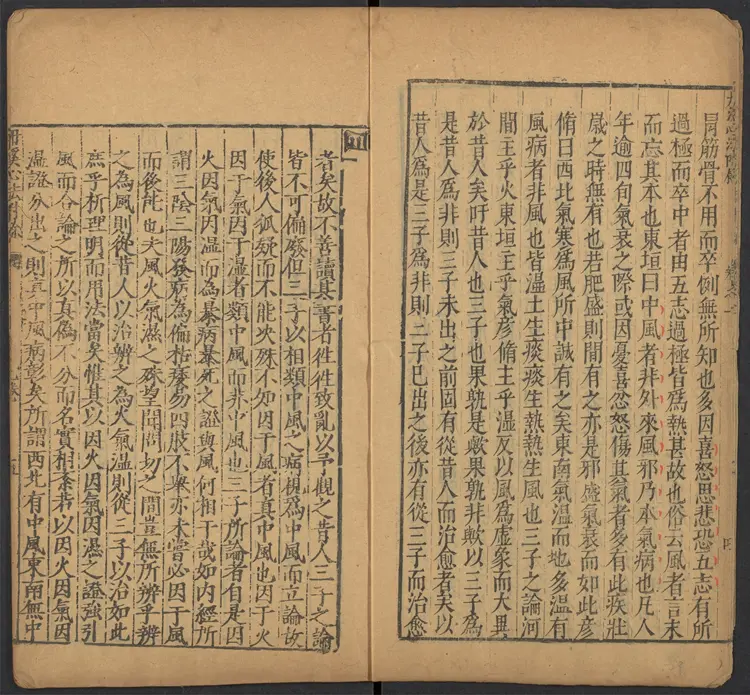 胃筋骨不用而卒倒無所知也多因喜怒思悲恐五志有所
過極而卒中者由五志過極皆爲熱甚故也俗云風者言末
而忘其本也東垣曰中風者非外來風邪乃本氣病也凡人
年逾四旬氣衰之際或因憂喜忿怒傷其氣者多有此疾壯
歲之時無有也若肥盛則間有之亦是邪盛氣衰而如此彥
脩曰西北氣寒爲風所中誠有之矣東南氣溫而地多濕有
風病者非風也皆濕土生痰痰生熱熱生風也三子之論河
間主乎火東垣主乎氣彥脩主乎濕反以風爲虛象而大異
於昔人矣吁昔人也三子也果孰是歟果孰非歟以三子爲
是昔人爲非則三子未出之前固有從昔人而治愈者矣以
昔人爲是三子爲非則三子已出之後亦有從三子而治愈
者矣故不善讀其書者徃徃致亂以予觀之昔人三子之論
皆不可偏廢但三子以相類中風之病視爲中風而立論故
使後人狐疑而不能決殊不知因于風者真中風也因于火
因于氣因于濕者類中風而非中風也三子所論者自是因
火因氣因濕而爲暴病暴死之證與風何相干哉如內經所
謂三陰三陽發病爲偏枯痿易四肢不舉亦未嘗必因于風
而後能也夫風火氣濕之殊望聞問切之間豈無所辨乎辨
之爲風則從昔人以治辨之爲火氣濕則從三子以治如此
庶乎析理明而用法當矣惟其以因火因氣因濕之證強引
風而合論之所以真僞不分而名實相紊若以因火因氣因
濕證分出之則真中風病彰矣所謂西北有中風東南無中
丹溪心法附餘